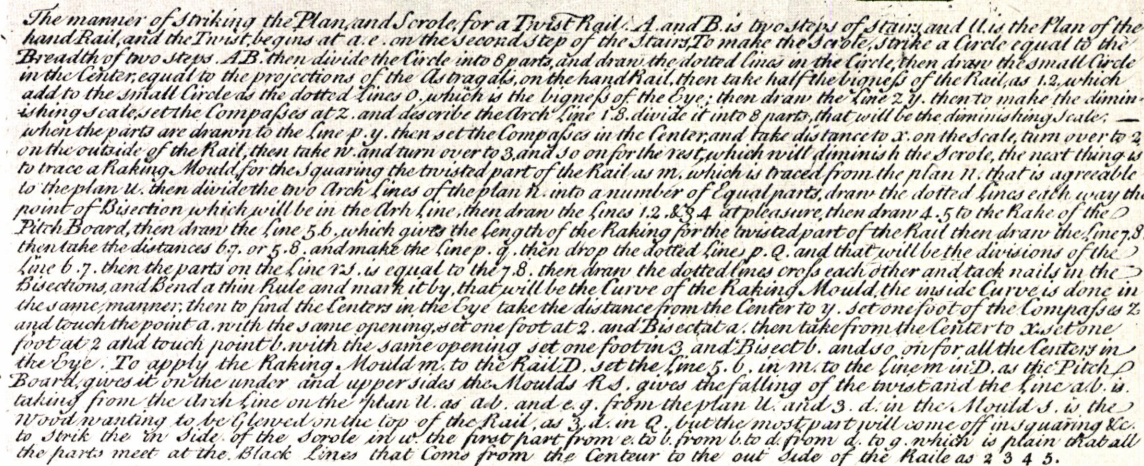 The manner of Striking the Plan, and Scrole, for a Twist Rail. A. and B. is two steps of Stairs, and U. is the Plan of the
hand Rail, and the Twist, begins at a. e. on the second Step of the Stairs, To make the Scrole, Strike a Circle equal to the
Breadth of two steps. A B. then divide the Circle into 8 parts, and draw the dotted lines in the Circle, then draw the small Circle
in the Center, equal to the projections of the Astragals, on the hand Rail, then take half the bigness of the Rail, as 1.2, which
add to the small Circle as the dotted Lines O. which is the bigness of the Eye; then draw the Line 2 y. then to make the dimin-
-ishing Scale, set the Compasses at 2. and describe the Arch Line 1.8. divide it into 8 parts, that will be the diminishing Scale;
when the parts are drawn to the Line p. y. then set the Compasses in the Center, and take distance to x. on the Scale, turn over to 2
on the outside of the Rail, then take w. and turn over to 3, and so on for the rest, which will diminish the Scrole, the next thing is
to trace a Raking Mould, for the Squaring the twisted part of the Rail as m. which is traced from the plan n. that is agreeable
to the plan U. then divide the two Arch Lines of the plan n. into a number of Equal parts, draw the dotted Lines each way th
point of Bisection which will be in the Arh Line, then draw the Lines 1.2. & 3 4 at pleasure, then draw 4.5 to the Rake of the
Pitch Board, then draw the Line 5.6., which gives the length of the Raking for the twisted part of the Rail then draw the Line 7.8.
then take the distances 6.7. or 5.8. and make the Line p. q. then drop the dotted Line, p. Q. and that will be the divisions of the
Line 6.7. then the parts on the Line r.s. is equal to the 7.8. then draw the dotted lines cross each other and tack nails in the
Bisections, and Bend a thin Rule and mark it by, that will be the Curve of the Raking Mould, the inside Curve, is done in
the same manner, then to find the Centers in the Eye take the distance from the Center to y. set one foot of the Compasses 2
and touch the point a. with the same opening, set one foot at 2. and Bisect at a; then take from the Center to x. set one
foot at 2 and touch point b. with the same opening set one foot in 3 and Bisect b. and so on for all the Centers in
the Eye. To apply the Raking Mould m. to the Rail D. set the Line 5. 6. in m. to the Line m in D. as the Pitch
Board, gives it on the under and upper sides the Moulds R.S. gives the falling of the twist and the Line a.b. is
taking from the Arch Line on the plan U. as a.b. and e.g. from the plan U. and 3. d. in the Mould s. is the
Wood wanting to be Glewed on the top of the Rail, as 3. d. in Q. but the most part will come off in squaring &c.
to Strik the in Side of the Scrole in w. the first part from e. to b. from b. to d. from d. to g. which is plain that all
the parts meet at the Black Lines that Coms from the Centeur to the out Side of the Raile as 2 3 4 5.